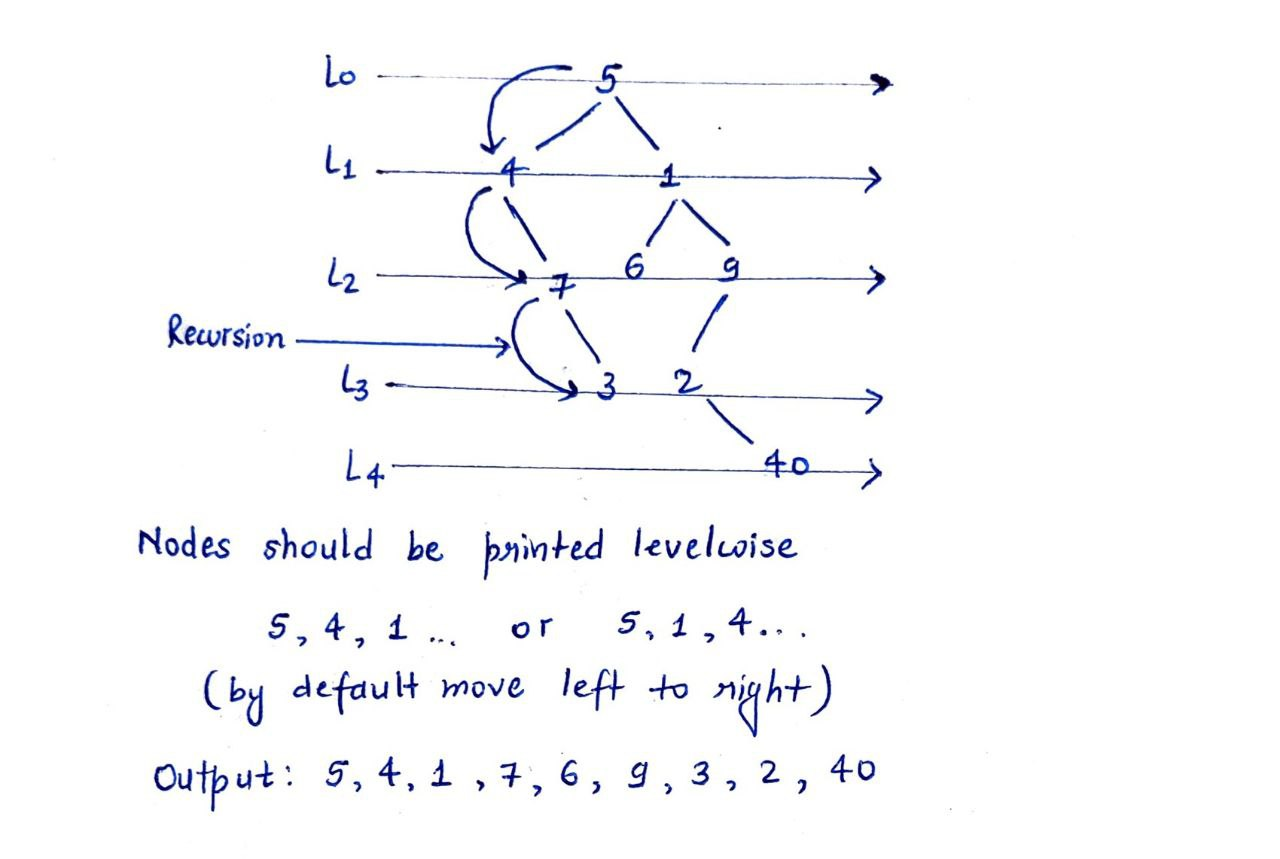 L0 5
L1 4 1
L2 7 6 9
Recursion
L3 3 2
L4 40
Nodes should be printed levelwise
5, 4, 1 ... or 5, 1, 4...
(by default move left to right)
Output: 5, 4, 1, 7, 6, 9, 3, 2, 40